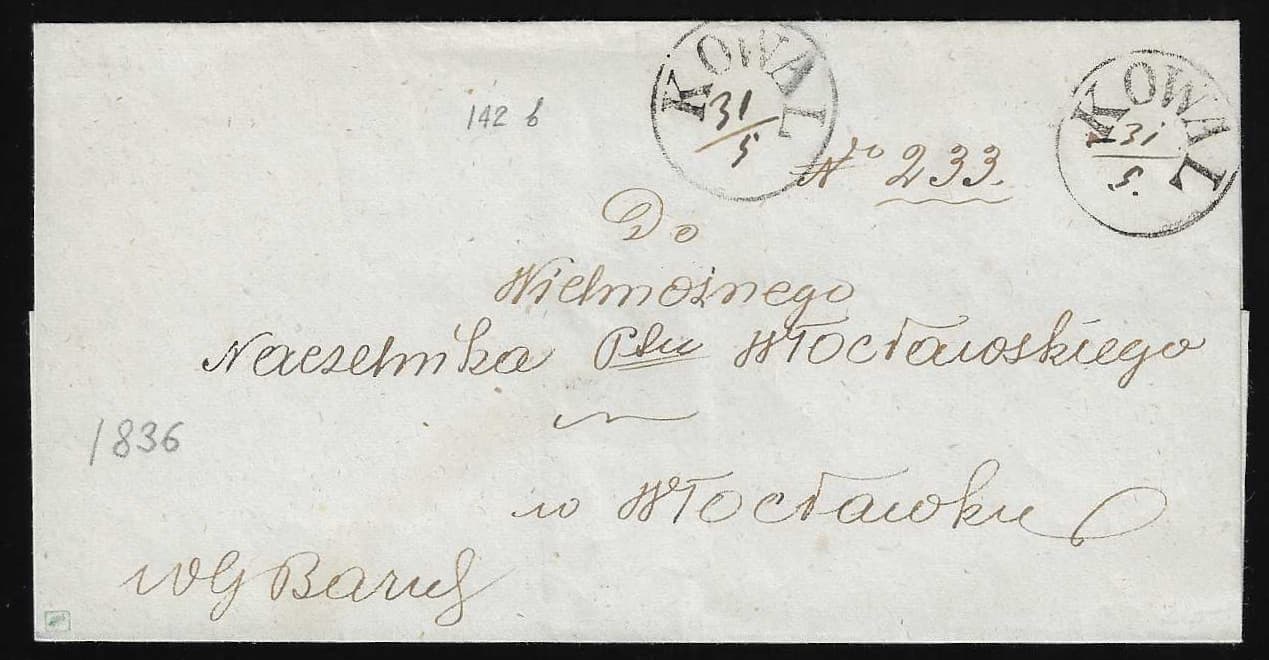 KOWAL
31/5
KOWAL
31/5.
142 b
No 233.
Do
Wielmożnego
Naczelnika Ptu Włocławskiego
1836
w Włocławku
WG Baruch